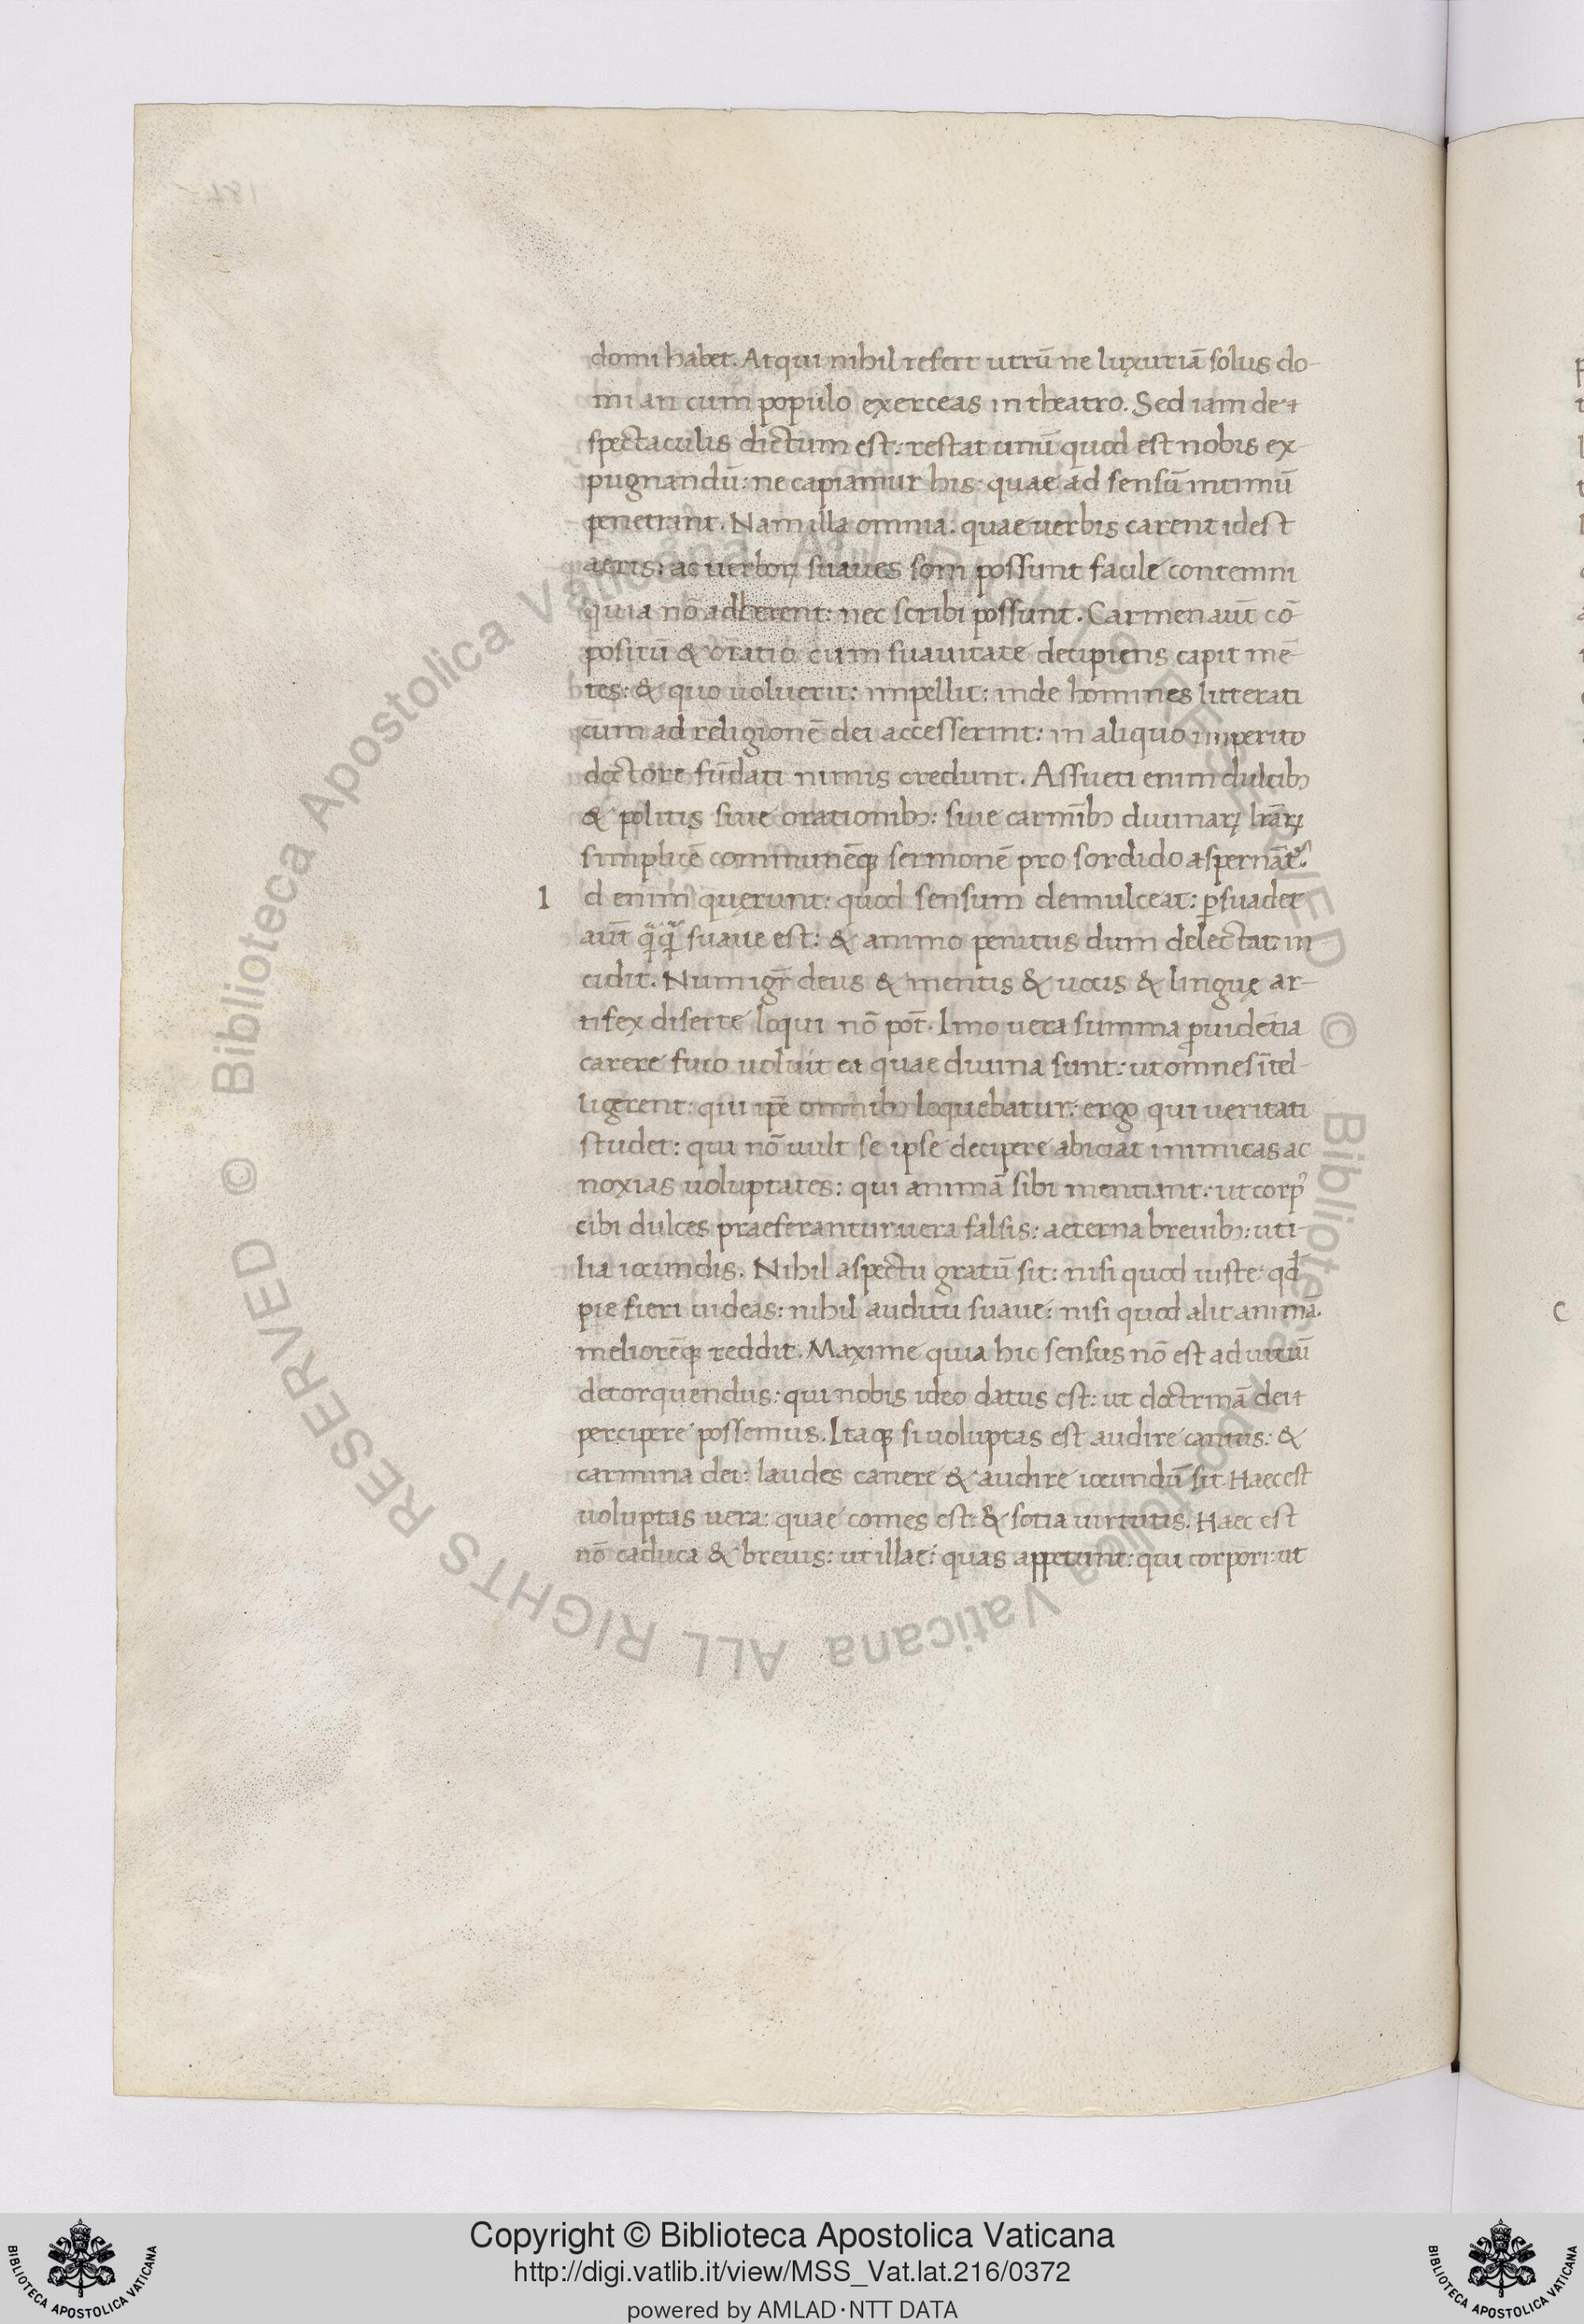 domi habet. Atqui nihil refert utrū ne luxuriā solus do-
mi an cum populo exerceas in theatro. Sed iam de
spectaculis dictum est: restat unū quod est nobis ex
pugnandū: ne capiamur his: quae ad sensū intimū
penetrant. Nam illa omnia. quae uerbis carent idest
aeris: ac uerboꝝ suaues soni possunt facile contemni
quia nō adherent: nec scribi possunt. Carmen aūt cō-
positū & oratio cum suauitate decipiens capit mē-
tes: & quo uoluerit: impellit: inde homines litterati
cum ad religionē dei accesserint: in aliquo imperito
doctore fūdati nimis credunt. Assueti enim dulcibꝫ
& politis siue orationibꝫ: siue carmībꝫ diuinaꝝ lr̄aꝝ
simplicē communēqꝫ sermonē pro sordido aspernāt᷑.
I d enim quęrunt: quod sensum demulceat: ꝑsuadet
aūt q̇cq̇d suaue est: & animo penitus dum delectat in
cidit. Num igr̄ deus & mentis & uocis & linguę ar-
tifex diserte loqui nō pōt. Imo uera summa ꝓuidētia
carere fuco uoluit ea quae diuina sunt: ut omnes ītel-
ligerent: qui ip̄e omnibꝫ loquebatur: ergo qui ueritati
studet: qui nō uult se ipse decipere abiciat inimicas ac
noxias uoluptates: qui animā sibi menciant: ut corpꝰ
cibi dulces praeferantur uera falsis: aeterna breuibꝫ: uti-
lia iocundis. Nihil aspectu gratū sit: nisi quod iuste: qđ
pie fieri uideas: nihil auditu suaue: nisi quod alit anima.
meliorēqꝫ reddit. Maxime quia hic sensus nō est ad uitiū
detorquendus: qui nobis ideo datus est: ut doctrinā dei
percipere possemus. Itaqꝫ si uoluptas est audire cantus: &
carmina dei: laudes canere & audire iocundū sit. Haec est
uoluptas uera: quae comes est: & sotia uirtutis. Haec est
nō caduca & breuis: ut illae: quas appetunt: qui corpori: ut
Copyright © Biblioteca Apostolica Vaticana
http://digi.vatlib.it/view/MSS_Vat.lat.216/0372
powered by AMLAD·NTT DATA